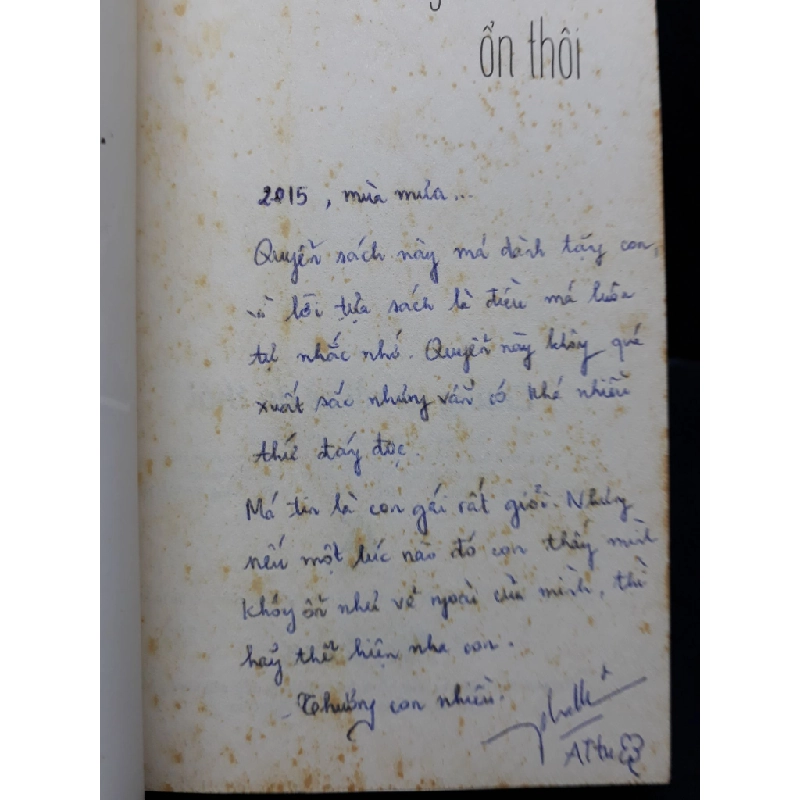 ổn thôi
2015, mùa mưa...
Quyển sách này má dành tặng con,
vì lời tựa sách là điều má luôn
tự nhắc nhớ. Quyển này không quá
xuất sắc nhưng vẫn có khá nhiều
thứ đáng đọc.
Má tin là con gái rất giỏi. Nhưng
nếu một lúc nào đó con thấy mình
không ổn như vẻ ngoài của mình, thì
hãy thể hiện nha con.
Thương con nhiều.